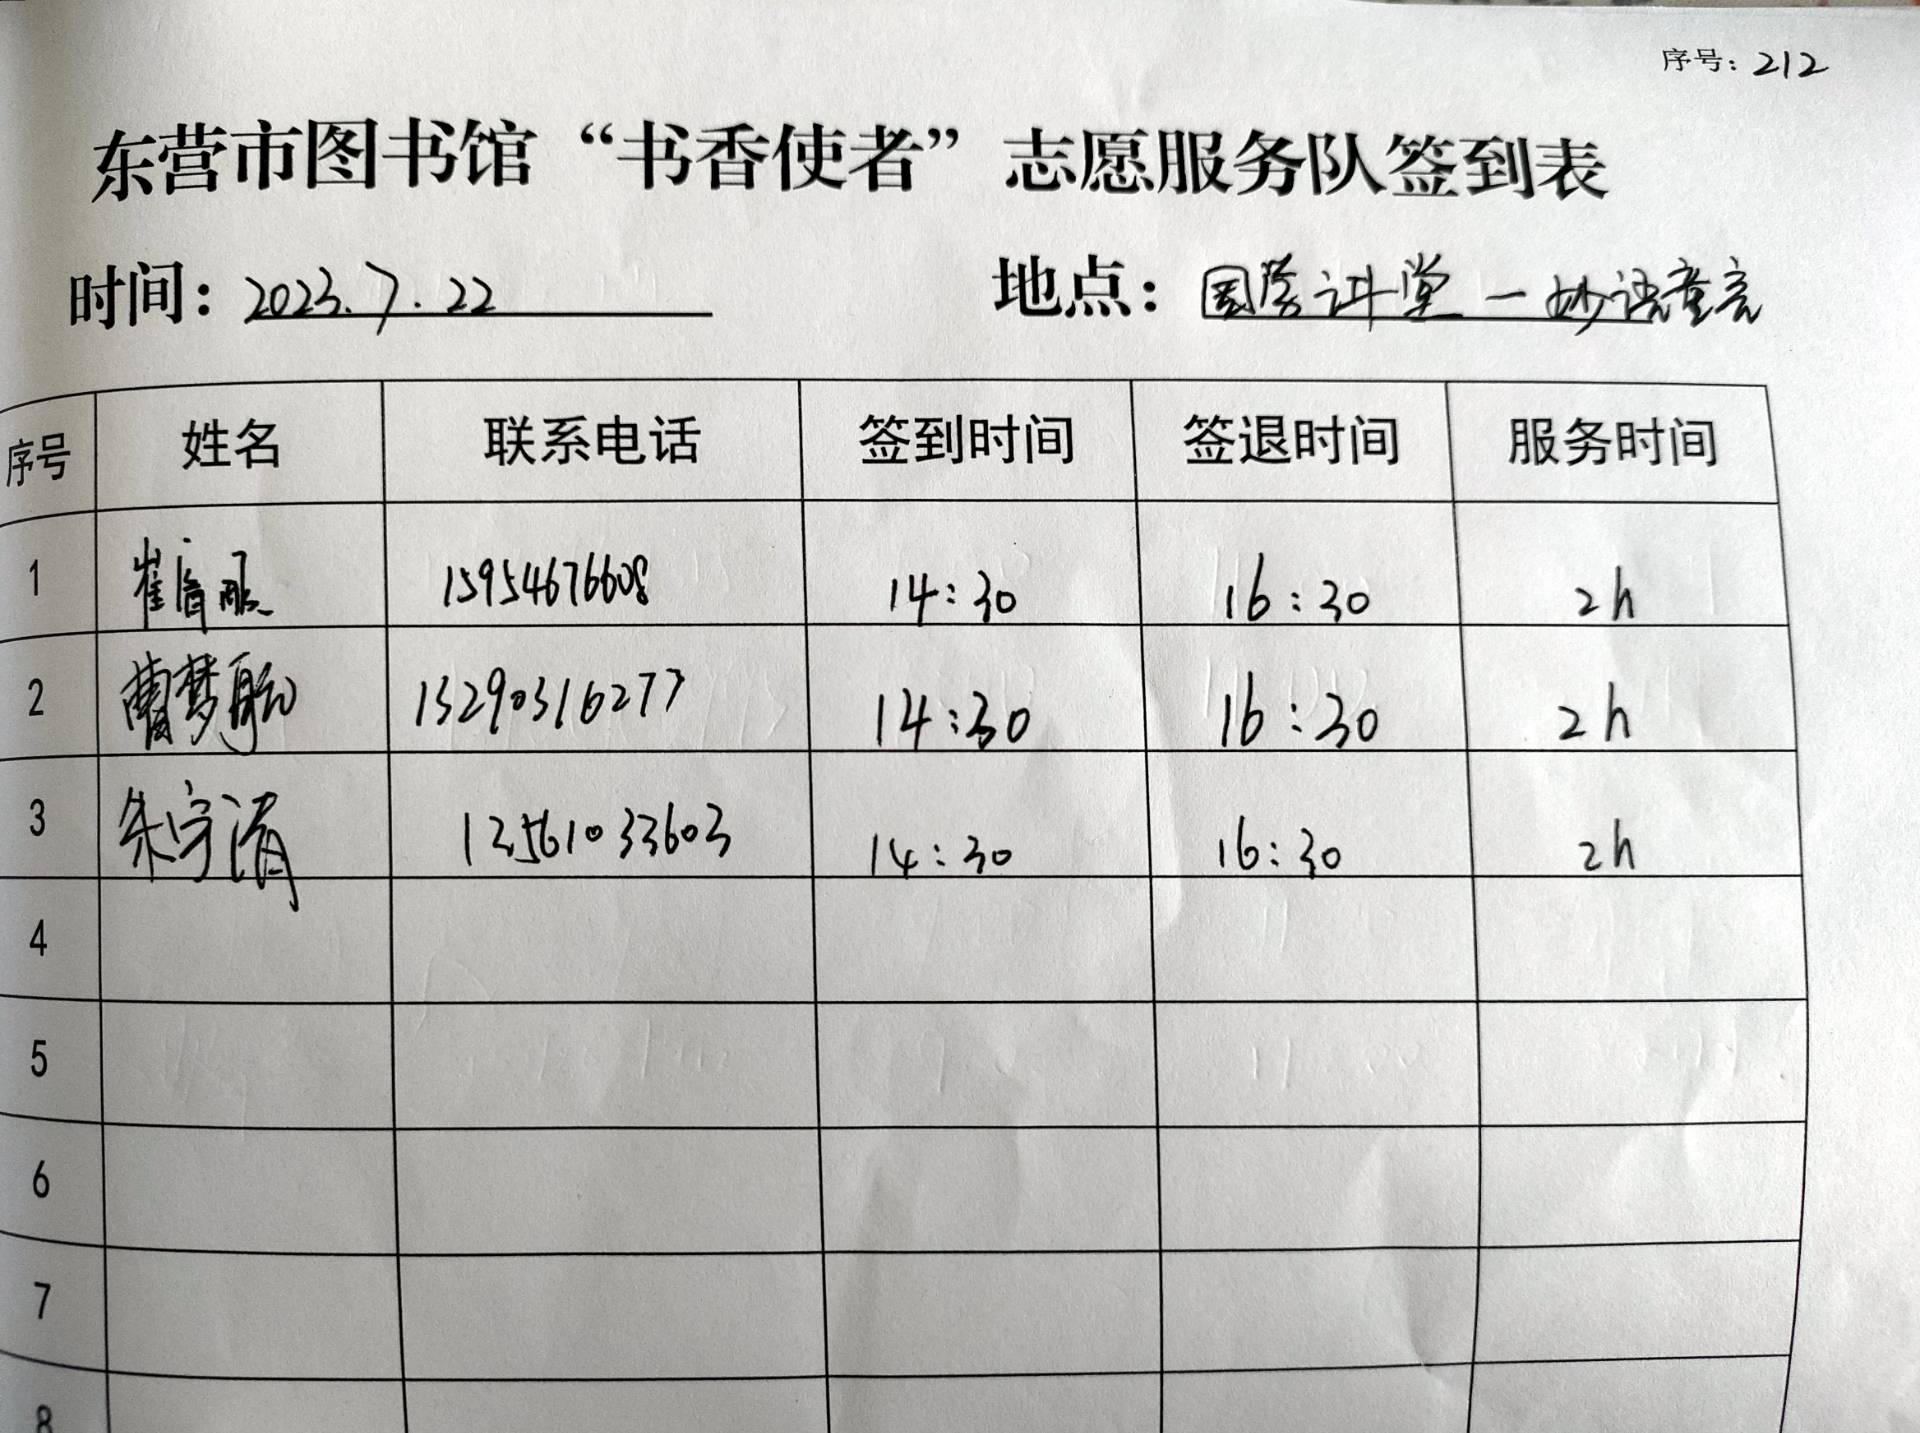 序号：212
东营市图书馆“书香使者”志愿服务队签到表
时间：2023.7.22 地点：国学讲堂—妙语童言
序号 姓名 联系电话 签到时间 签退时间 服务时间
1 崔 15954676608 14:30 16:30 2h
2 曹梦 13290316277 14:30 16:30 2h
3 朱宇清 13561033603 14:30 16:30 2h
4
5
6
7
8